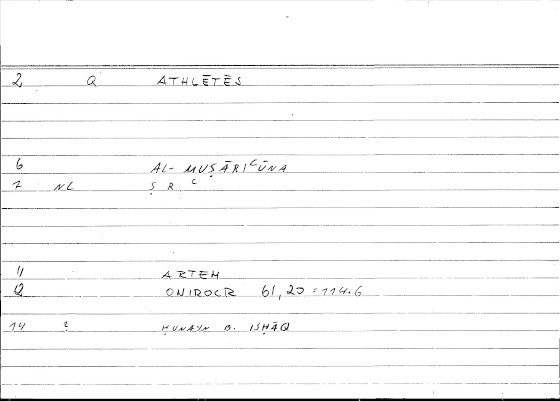 2 Q ATHLĒTĒS
6 AL- MUṢĀRIʿŪNA
7 NL Ṣ R ʿ
11 ARTEM
12 ONIROCR 61,20 = 114.6
14 2 ḤUNAYN B. ISḤĀQ